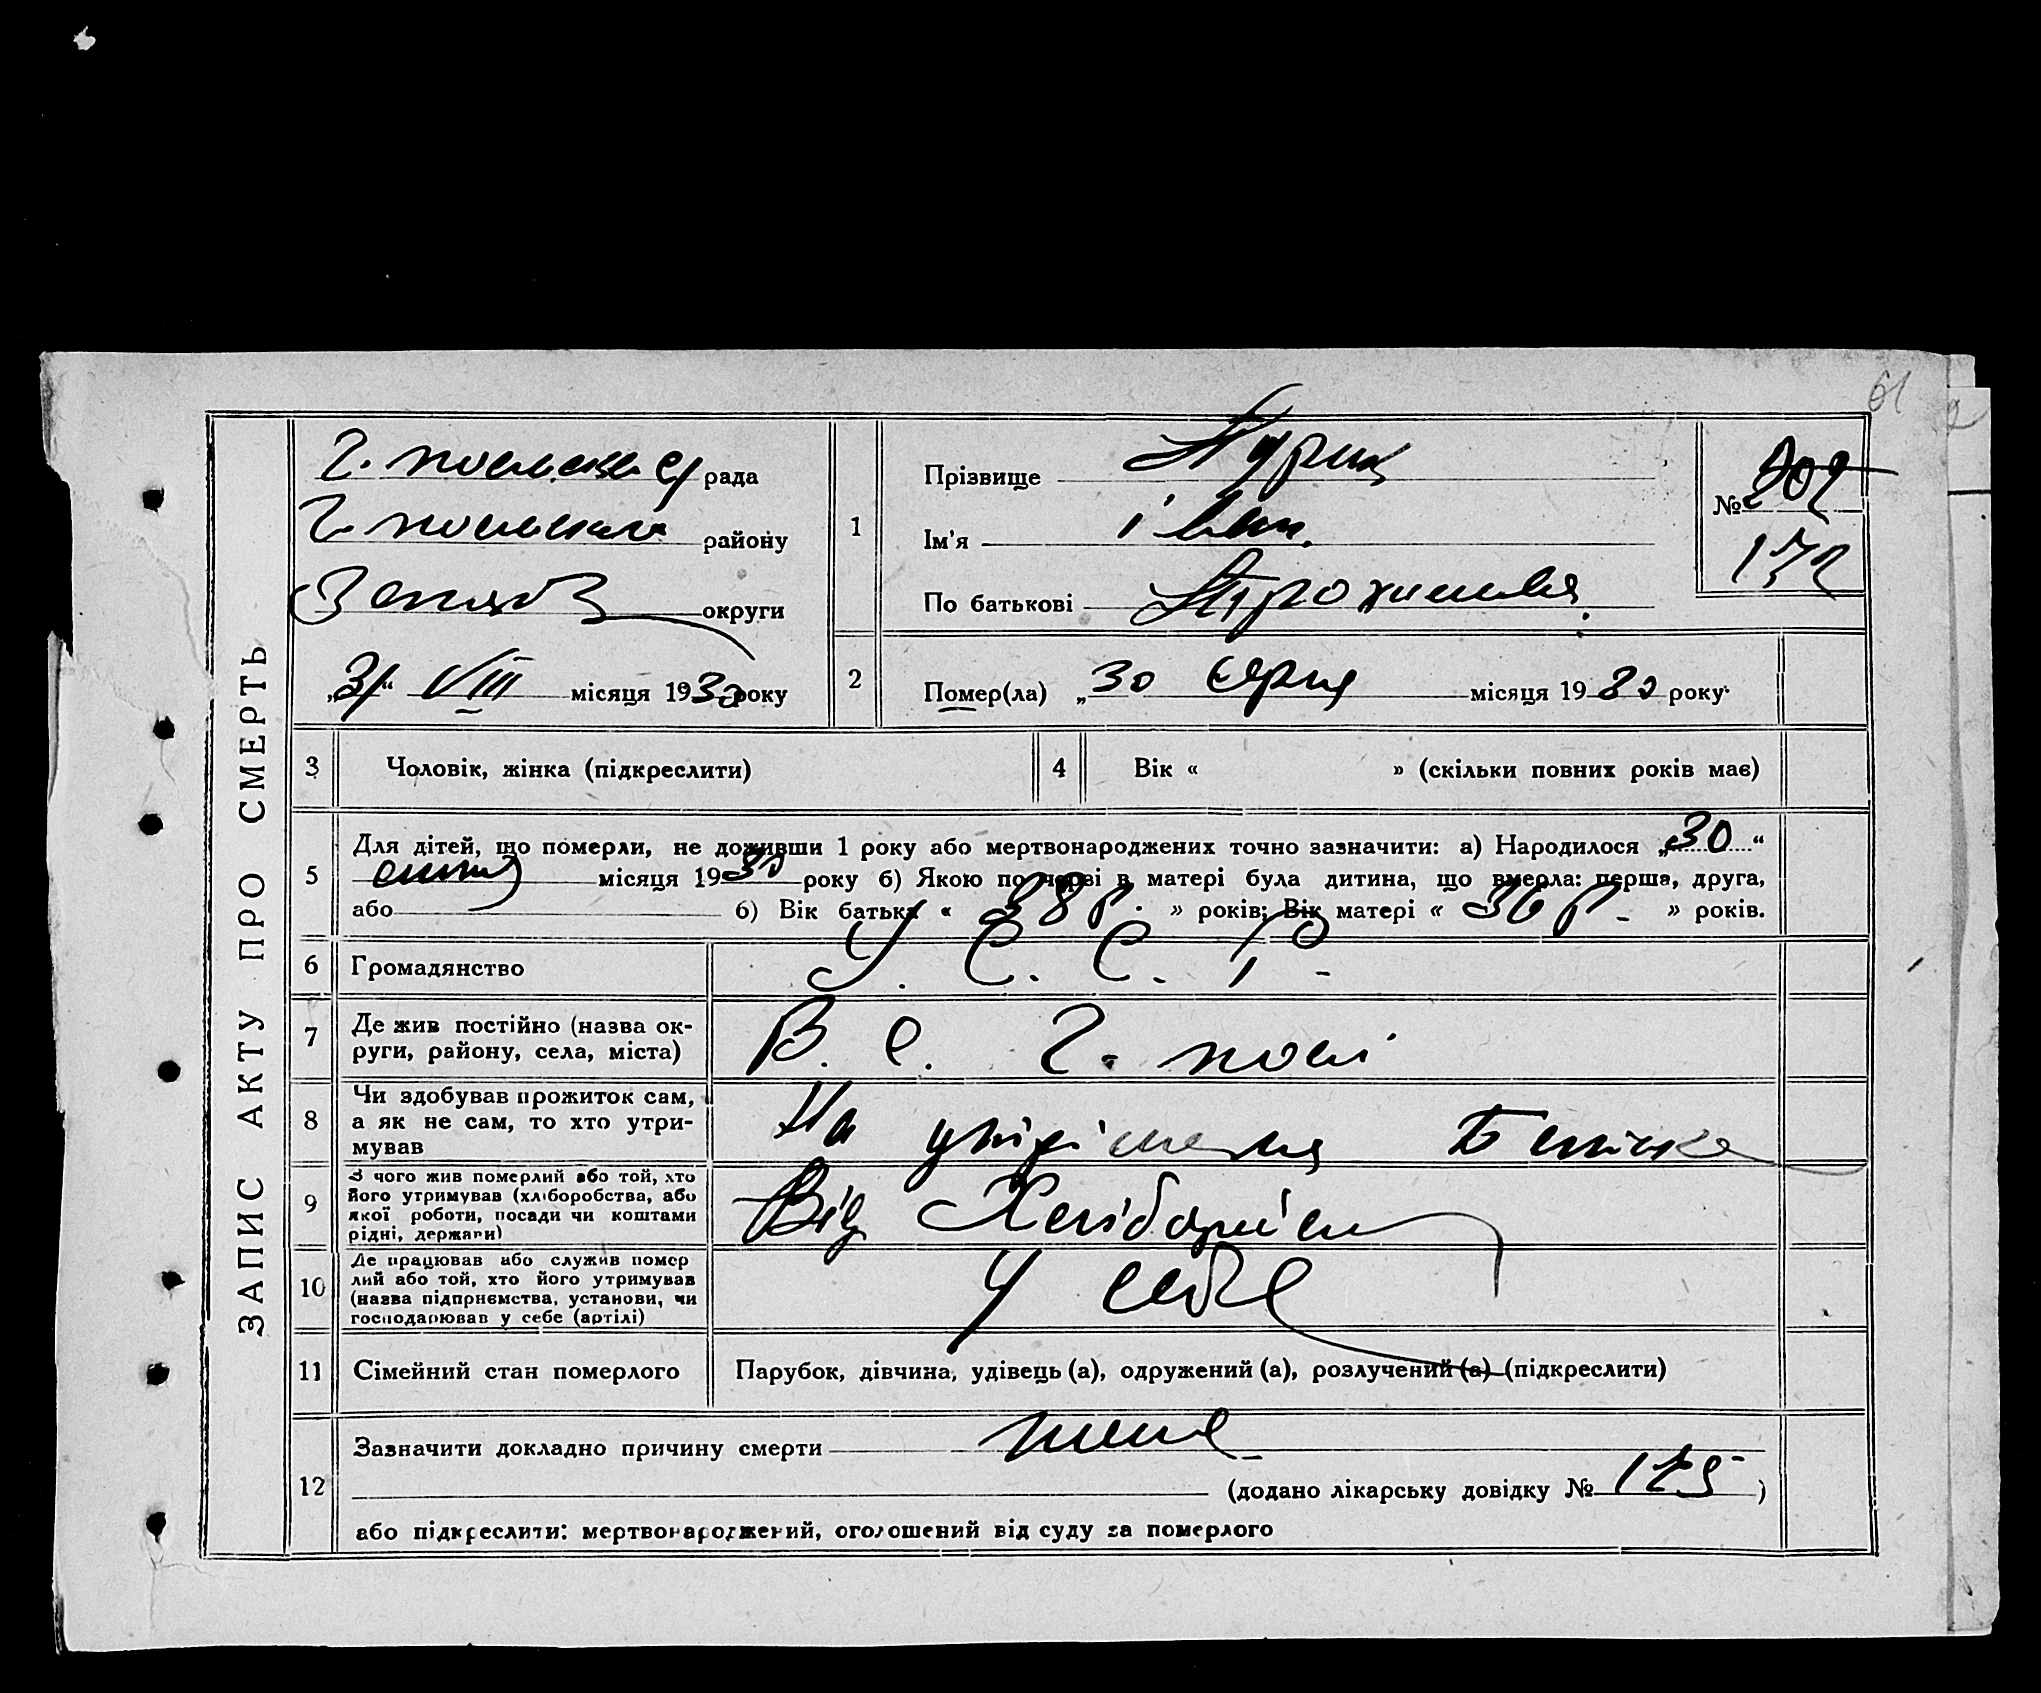 61
ЗАПИС АКТУ ПРО СМЕРТЬ
рада
району
округи
„31“ VIII місяця 1930 року
1
Прізвище
Ім'я Іван.
По батькові
№ 202
172
2
Помер(ла) „30 серпня місяця 1930 року
3 Чоловік, жінка (підкреслити)
4 Вік « » (скільки повних років має)
5
Для дітей, що померли, не доживши 1 року або мертвонароджених точно зазначити: а) Народилося „30“
місяця 1930 року б) Якою по черзі в матері була дитина, що вмерла: перша, друга,
або б) Вік батька « 38 р. » років; Вік матері « 36 р. » років.
6 Громадянство У. С. С. Р.
7
Де жив постійно (назва ок-
руги, району, села, міста)
В. с. Г.
8
Чи здобував прожиток сам,
а як не сам, то хто утри-
мував
На Батька
9
З чого жив померлий або той, хто
його утримував (хліборобства, або
якої роботи, посади чи коштами
рідні, держави)
Від
10
Де працював або служив помер
лий або той, хто його утримував
(назва підприємства, установи, чи
господарював у себе (артілі)
У себе
11 Сімейний стан померлого Парубок, дівчина, удівець (а), одружений (а), розлучений (а) (підкреслити)
12
Зазначити докладно причину смерти
(додано лікарську довідку № 175)
або підкреслити: мертвонароджений, оголошений від суду за померлого